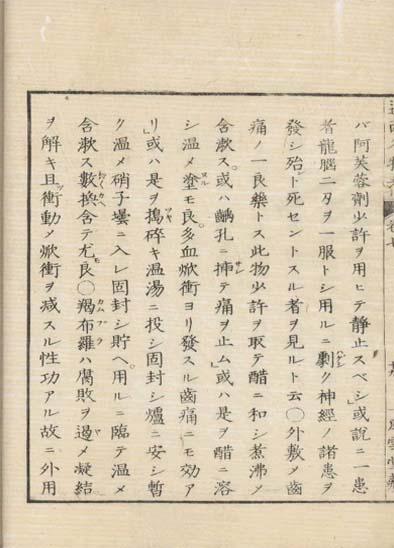 バ阿芙蓉劑少許ヲ用ヒテ靜止スベシ」或說ニ一患
者龍腦二刄ヲ一服トシ用ルニ劇ク神經ノ諸患ヲ
發シ殆ント死セントスル者ヲ見ルト云〇外敷メ齒
痛ノ一良藥トス此物少許ヲ取テ醋ニ和シ煮沸メ
含漱ス」或ハ齲孔ニ揷テ痛ヲ止ム」或ハ是ヲ醋ニ溶
シ溫メ塗モ良」多血焮衝ヨリ發スル齒痛ニモ効ア
リ」或ハ是ヲ搗碎キ溫湯ニ投シ固封シ爐ニ安シ暫
ク溫メ硝子壜ニ入レ固封シ貯ヘ用ルニ臨テ溫メ
含漱ス數換含テ尤良〇羯布羅ハ腐敗ヲ遏メ凝結
ヲ解キ且衝動メ焮衝ヲ減スル性功アル故ニ外用